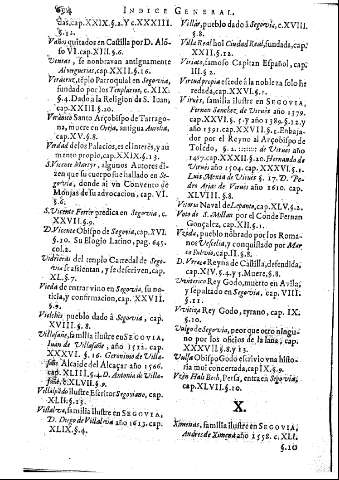 INDICE GENERAL.
das, cap. XXIX. §. 2. Y c. XXXIII.
§. 12.
Vaños quitados en Castilla por D. Alo-
so VI. cap. XVII. §. 6.
Ventas, se nombravan antiguamente
cap. XXII. §. 16.
Veracruz, téplo Parroquial en Segovia,
fundado por los Templarios, c. XIX.
§. 4. Dado a la Religion de S. Iuan,
cap. XXXIII. §. 10.
Santo Arçobispo de Tarrago-
na, muere en Oreja, antigua Aurelia,
cap. XV. §. 8.
Verdad de los Palacios, es el Interès, y su
nombre propio, cap. XXIX. §. 13.
S. Vicente Ferrer, algunos Autores di-
zen que su cuerpo fue hallado en Se-
govia, donde ai un Convento de
Monjas de su advocacion, cap. VI.
§. 6.
S. Vicente Ferrer predica en Segovia, c.
XXVII. §. 9.
D. Vicente Obispo de Segovia, cap. XVI.
§. 10. Su Elogio Latino, pag. 645.
col. 2.
Vidrieras del templo Catredal de Sego-
via se assientan, y se descriven, cap.
XL. §. 7.
Vieda de entrar vino en Segovia, su no-
ticia, y confirmacion, cap. XXVII.
§. 9.
pueblo dado à Segovia, cap.
XVIII. §. 8.
Villafañe, familia ilustre en SEGOVIA,
Iuan de Villafañe, año 1512. cap.
XXXVI. §. 16. Geronimo de Villa-
fañe Alcaide del Alcaçar año 1566.
cap. XLIII. §. 4. D. Antonio de Villa-
fañe, c. XLVII. §. 9.
ilustre Escritor Segoviano, cap.
XLII. §. 13.
Villalva, familia ilustre en SEGOVIA,
D. Diego de Villalva año 1613. cap.
XLIX. §. 4.
Villar, pueblo dado à Segovia, c. XVIII.
§. 8.
Villa Real hoi Ciudad Real, fundada, cap.
XXII. §. 12.
famoso Capitan Español, cap.
III. §. 2.
Virtud propia excede à la nobleza solo he-
redada, cap. XXVI. §. 1.
Virués, familia ilustre en SEGOVIA,
Fernan Sanchez, de Virués año 1379.
cap. XXVI. §. 5. y año 1389. §. 12. y
año 1391. cap. XXVII. §. 1. Enbaja-
dor por el Reyno al Arçobispo de
Toledo, §. 2. de Virués año
1467. cap. XXXII. §. 10. Hernando de
Virués año 1504. cap. XXXV. §. 1.
Luis Mexia de Virués §. 17. D. Pe-
dro Arias de Virués año 1610. cap.
XLVIII. §. 8.
Vitoria Naval de Lepanto, cap. XLV. §. 2.
Voto de S. Millan por el Conde Fernan
Gonçalez, cap. XII. §. 1.
pueblo nòbrado por los Roma-
nos Vesselia, y conquistado por Mar-
co Fulvio, cap. II. §. 8.
D. Vrraca Reyna de Castilla, defendida,
cap. XIV. §. 4. y 5. Muere, §. 8.
Rey Godo, muerto en Avila;
y sepultado en Segovia, cap. VIII.
§. 11.
Vvitiza Rey Godo, tyrano, cap. IX.
§. 10.
Vulgo de Segovia, peor que otro ningu-
no por los oficios de la lana, cap.
XXXVII. §. 8. y 13.
Vulsa Obispo Godo escrivio una histo-
ria mui concertada, cap. IX. §. 9.
Persa, entra en Segovia,
cap. XLVII. §. 10.
X.
Ximenez, familia ilustre en SEGOVIA,
Andres de Ximena año 1558. c. XLI.
§. 10